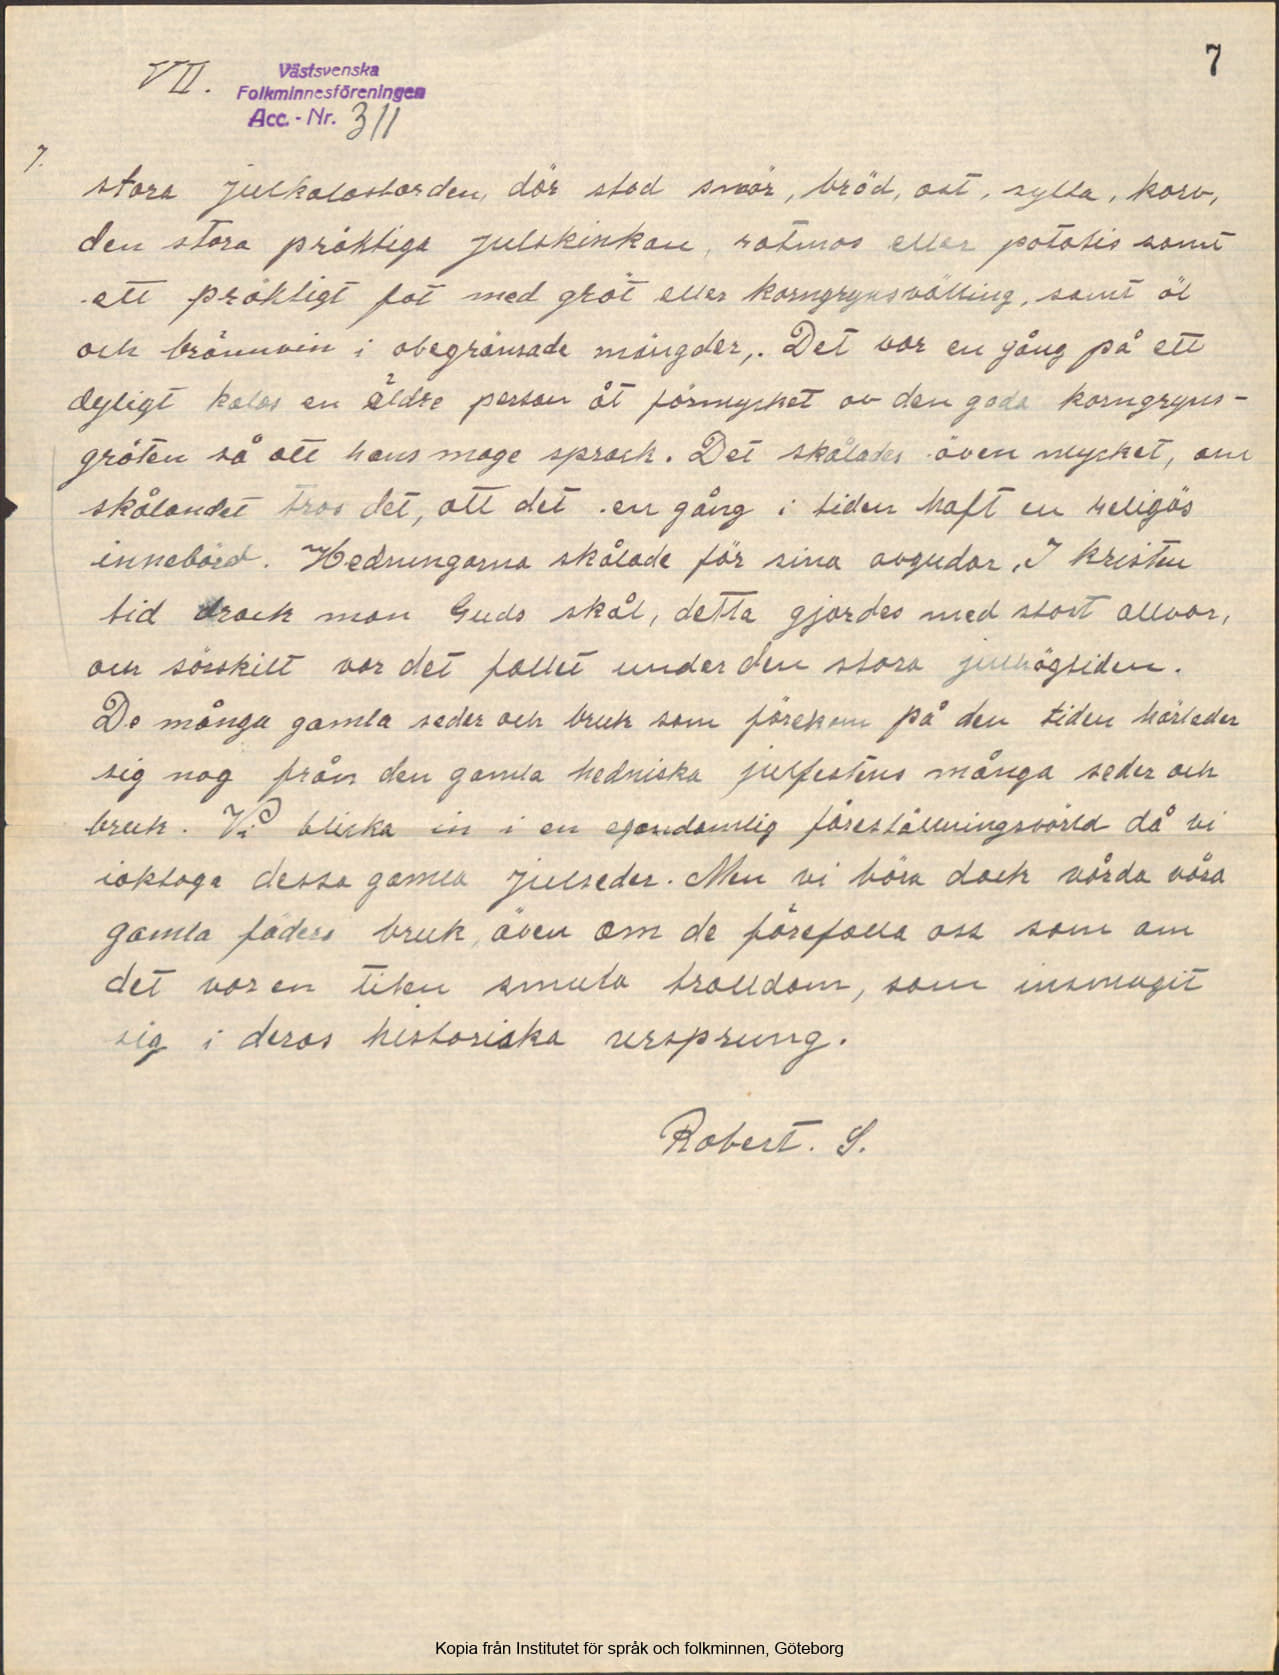 7
VII.
Västsvenska
Folkminnesföreningen
Acc. - Nr. 311
7.
stora julkalasborden, där stod smör, bröd, ost, sylta, korv,
den stora präktiga julskinkan, rotmos eller potatis samt
ett präktigt fat med gröt eller korngrynsvälling, samt öl
och brännvin i obegränsade mängder,. Det var en gång på ett
dyligt kalas en äldre person åt förmycket av den goda korngryns-
gröten så att hans mage sprack. Det skålades även mycket, om
skålandet tros det, att det en gång i tiden haft en religiös
innebörd. Hedningarna skålade för sina avgudar. I kristen
tid drack man Guds skål, detta gjordes med stort allvar,
och särskilt var det fallet under den stora julhögtiden.
De många gamla seder och bruk som förekom på den tiden härleder
sig nog från den gamla hedniska julfestens många seder och
bruk. Vi blicka in i en egendomlig föreställningsvärld då vi
iaktaga dessa gamla julseder. Men vi böra dock vårda våra
gamla fäders bruk, även om de förefalla oss som om
det var en liten smula trolldom, som insmugit
sig i deras historiska ursprung.
Robert. S.
Kopia från Institutet för språk och folkminnen, Göteborg